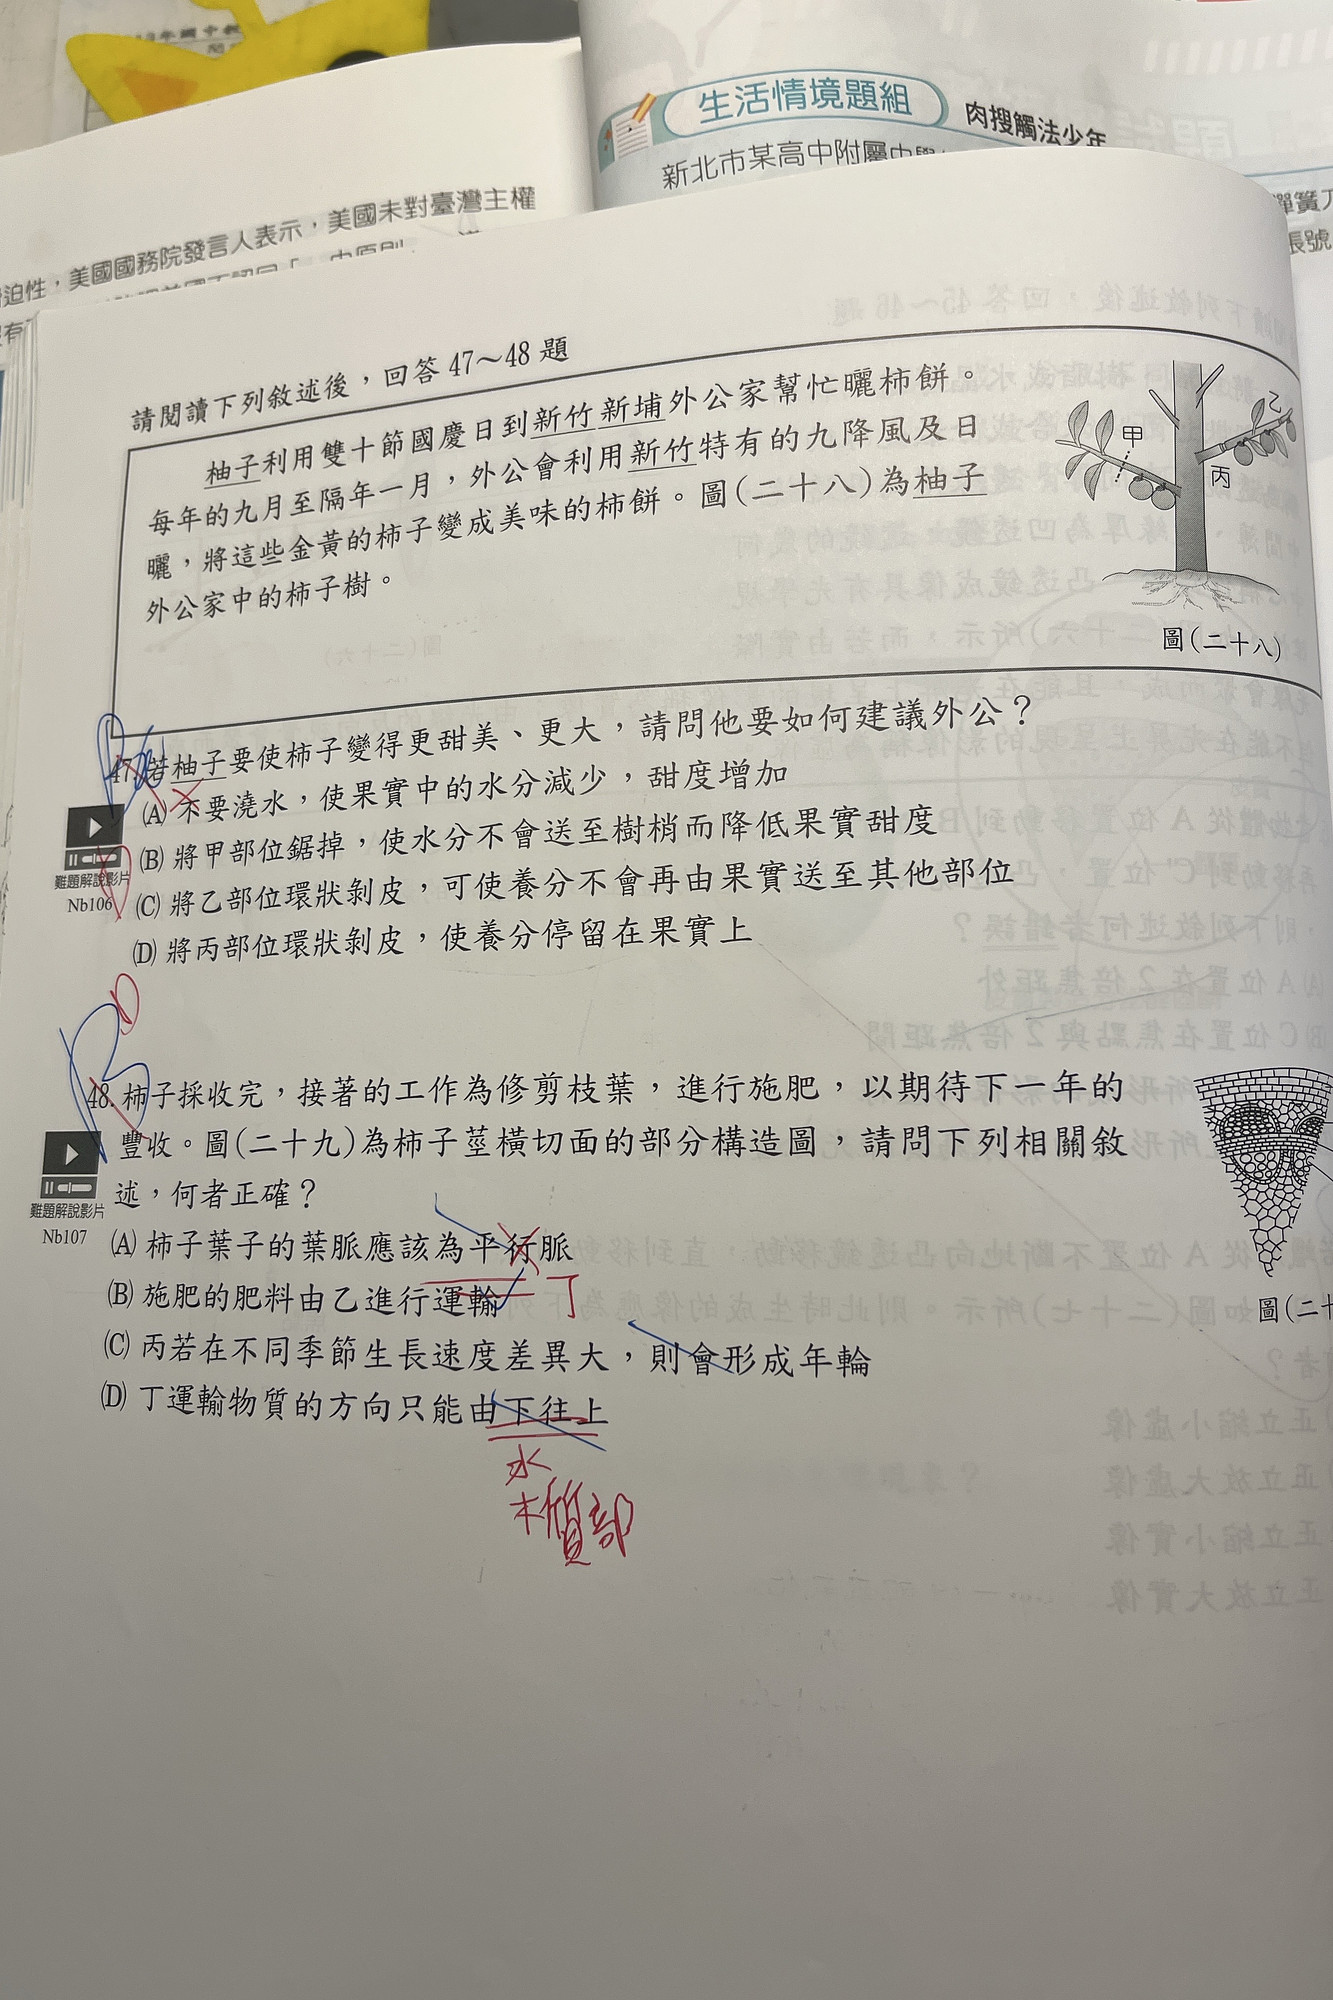 生活情境題組
肉搜觸法少年
新北市某高中附屬中學
迫性，美國國務院發言人表示，美國未對臺灣主權
彈簧刀
帳號
請閱讀下列敘述後，回答 47～48 題
柚子利用雙十節國慶日到新竹新埔外公家幫忙曬柿餅。
每年的九月至隔年一月，外公會利用新竹特有的九降風及日
曬，將這些金黃的柿子變成美味的柿餅。圖(二十八)為柚子
外公家中的柿子樹。
甲
乙
丙
圖(二十八)
47. 若柚子要使柿子變得更甜美、更大，請問他要如何建議外公？
(A) 不要澆水，使果實中的水分減少，甜度增加
(B) 將甲部位鋸掉，使水分不會送至樹梢而降低果實甜度
(C) 將乙部位環狀剝皮，可使養分不會再由果實送至其他部位
(D) 將丙部位環狀剝皮，使養分停留在果實上
難題解說影片
Nb106
B
D
48. 柿子採收完，接著的工作為修剪枝葉，進行施肥，以期待下一年的
豐收。圖(二十九)為柿子莖橫切面的部分構造圖，請問下列相關敘
述，何者正確？
難題解說影片
Nb107
(A) 柿子葉子的葉脈應該為平行脈
(B) 施肥的肥料由乙進行運輸
丁
(C) 丙若在不同季節生長速度差異大，則會形成年輪
(D) 丁運輸物質的方向只能由下往上
水
木質部
圖(二十